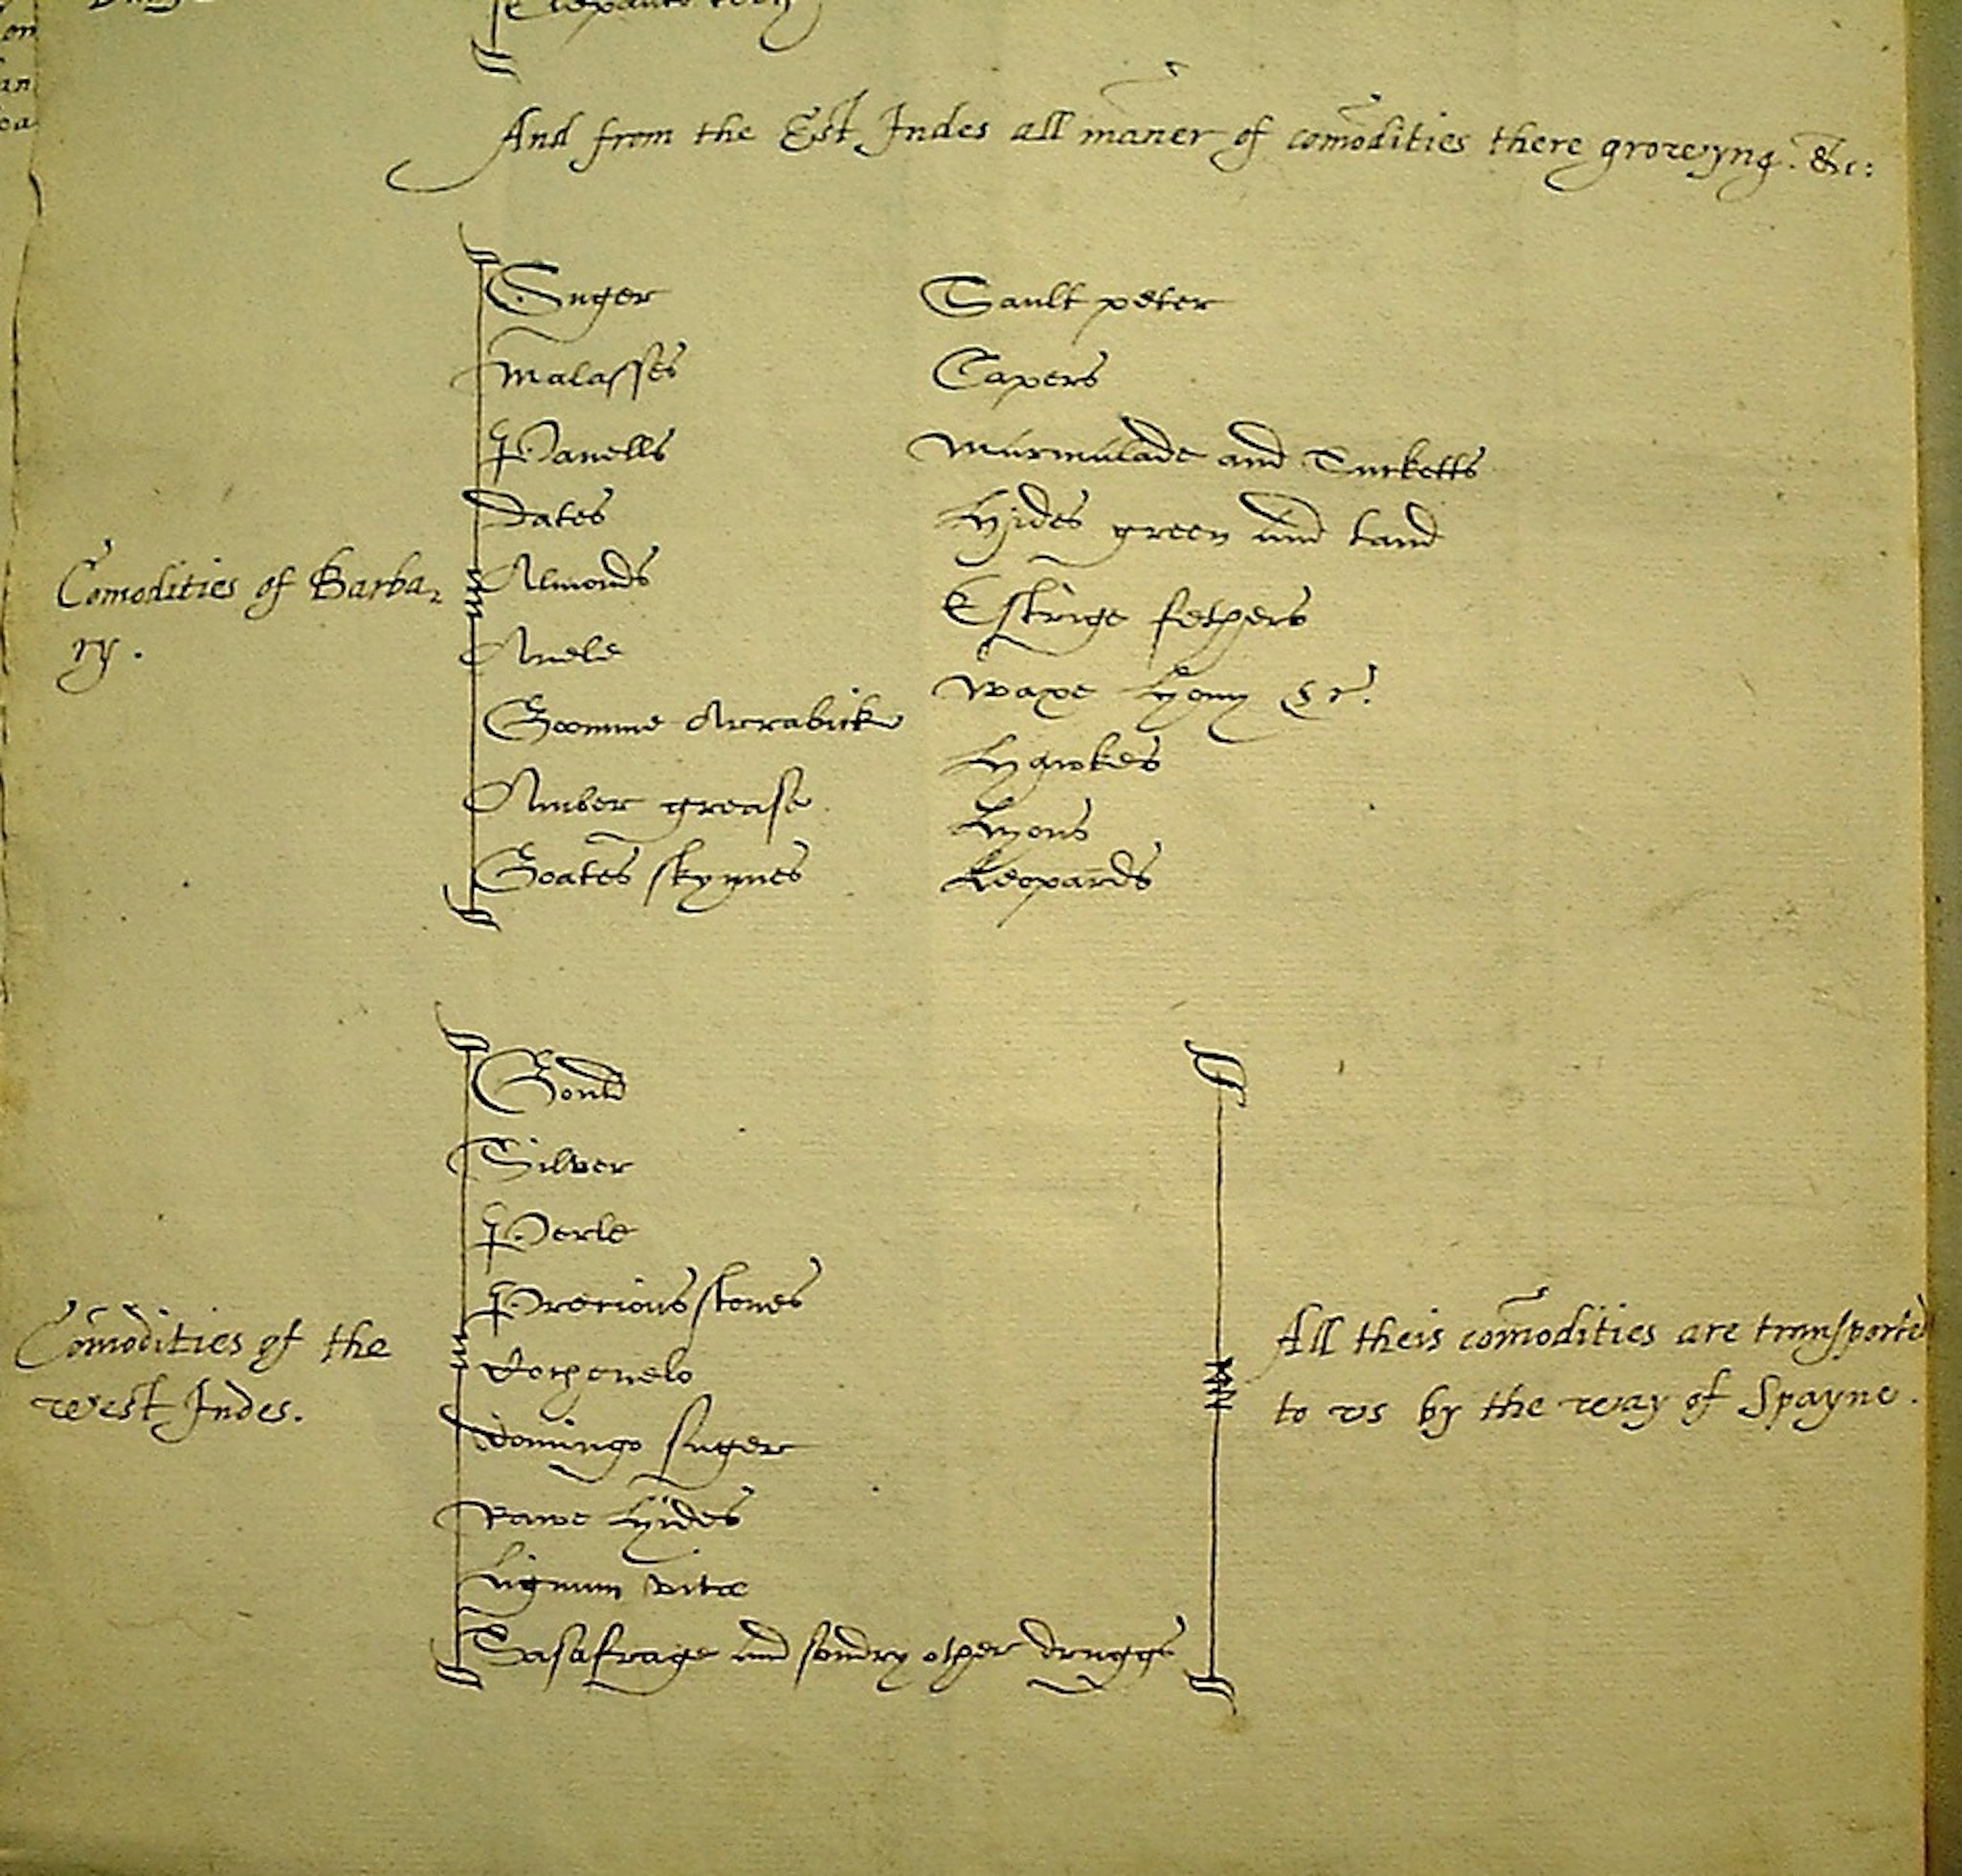 Elephants teeth
And from the Est Indes all maner of comodities there growyng. &c:
Comodities of Barba-
ry.
Suger
Malasses
Panells
Dates
Almonds
Anele
Goomme Arrabicke
Amber grease
Goates skynnes
Sault peter
Capers
Murmulade and Sucketts
Hides green and tand
Estrige fethers
Waxe hony &c.
Hawkes
Lyons
Leopards
Comodities of the
West Indes.
Gould
Silver
Perle
Precious stones
Cochenelo
Domingo suger
Rawe hides
Lignum vitæ
Sasafrage and sondry other druggs
All theis comodities are transported
to vs by the way of Spayne.